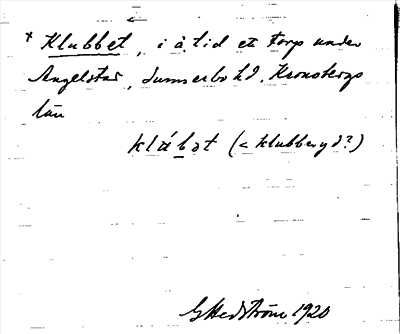 * Klubbet, i ä. tid ett torp under
Angelstad, Sunnerbo hd. Kronobergs
län
klúbǝt (< klubberyd?)
G Hedström 1920